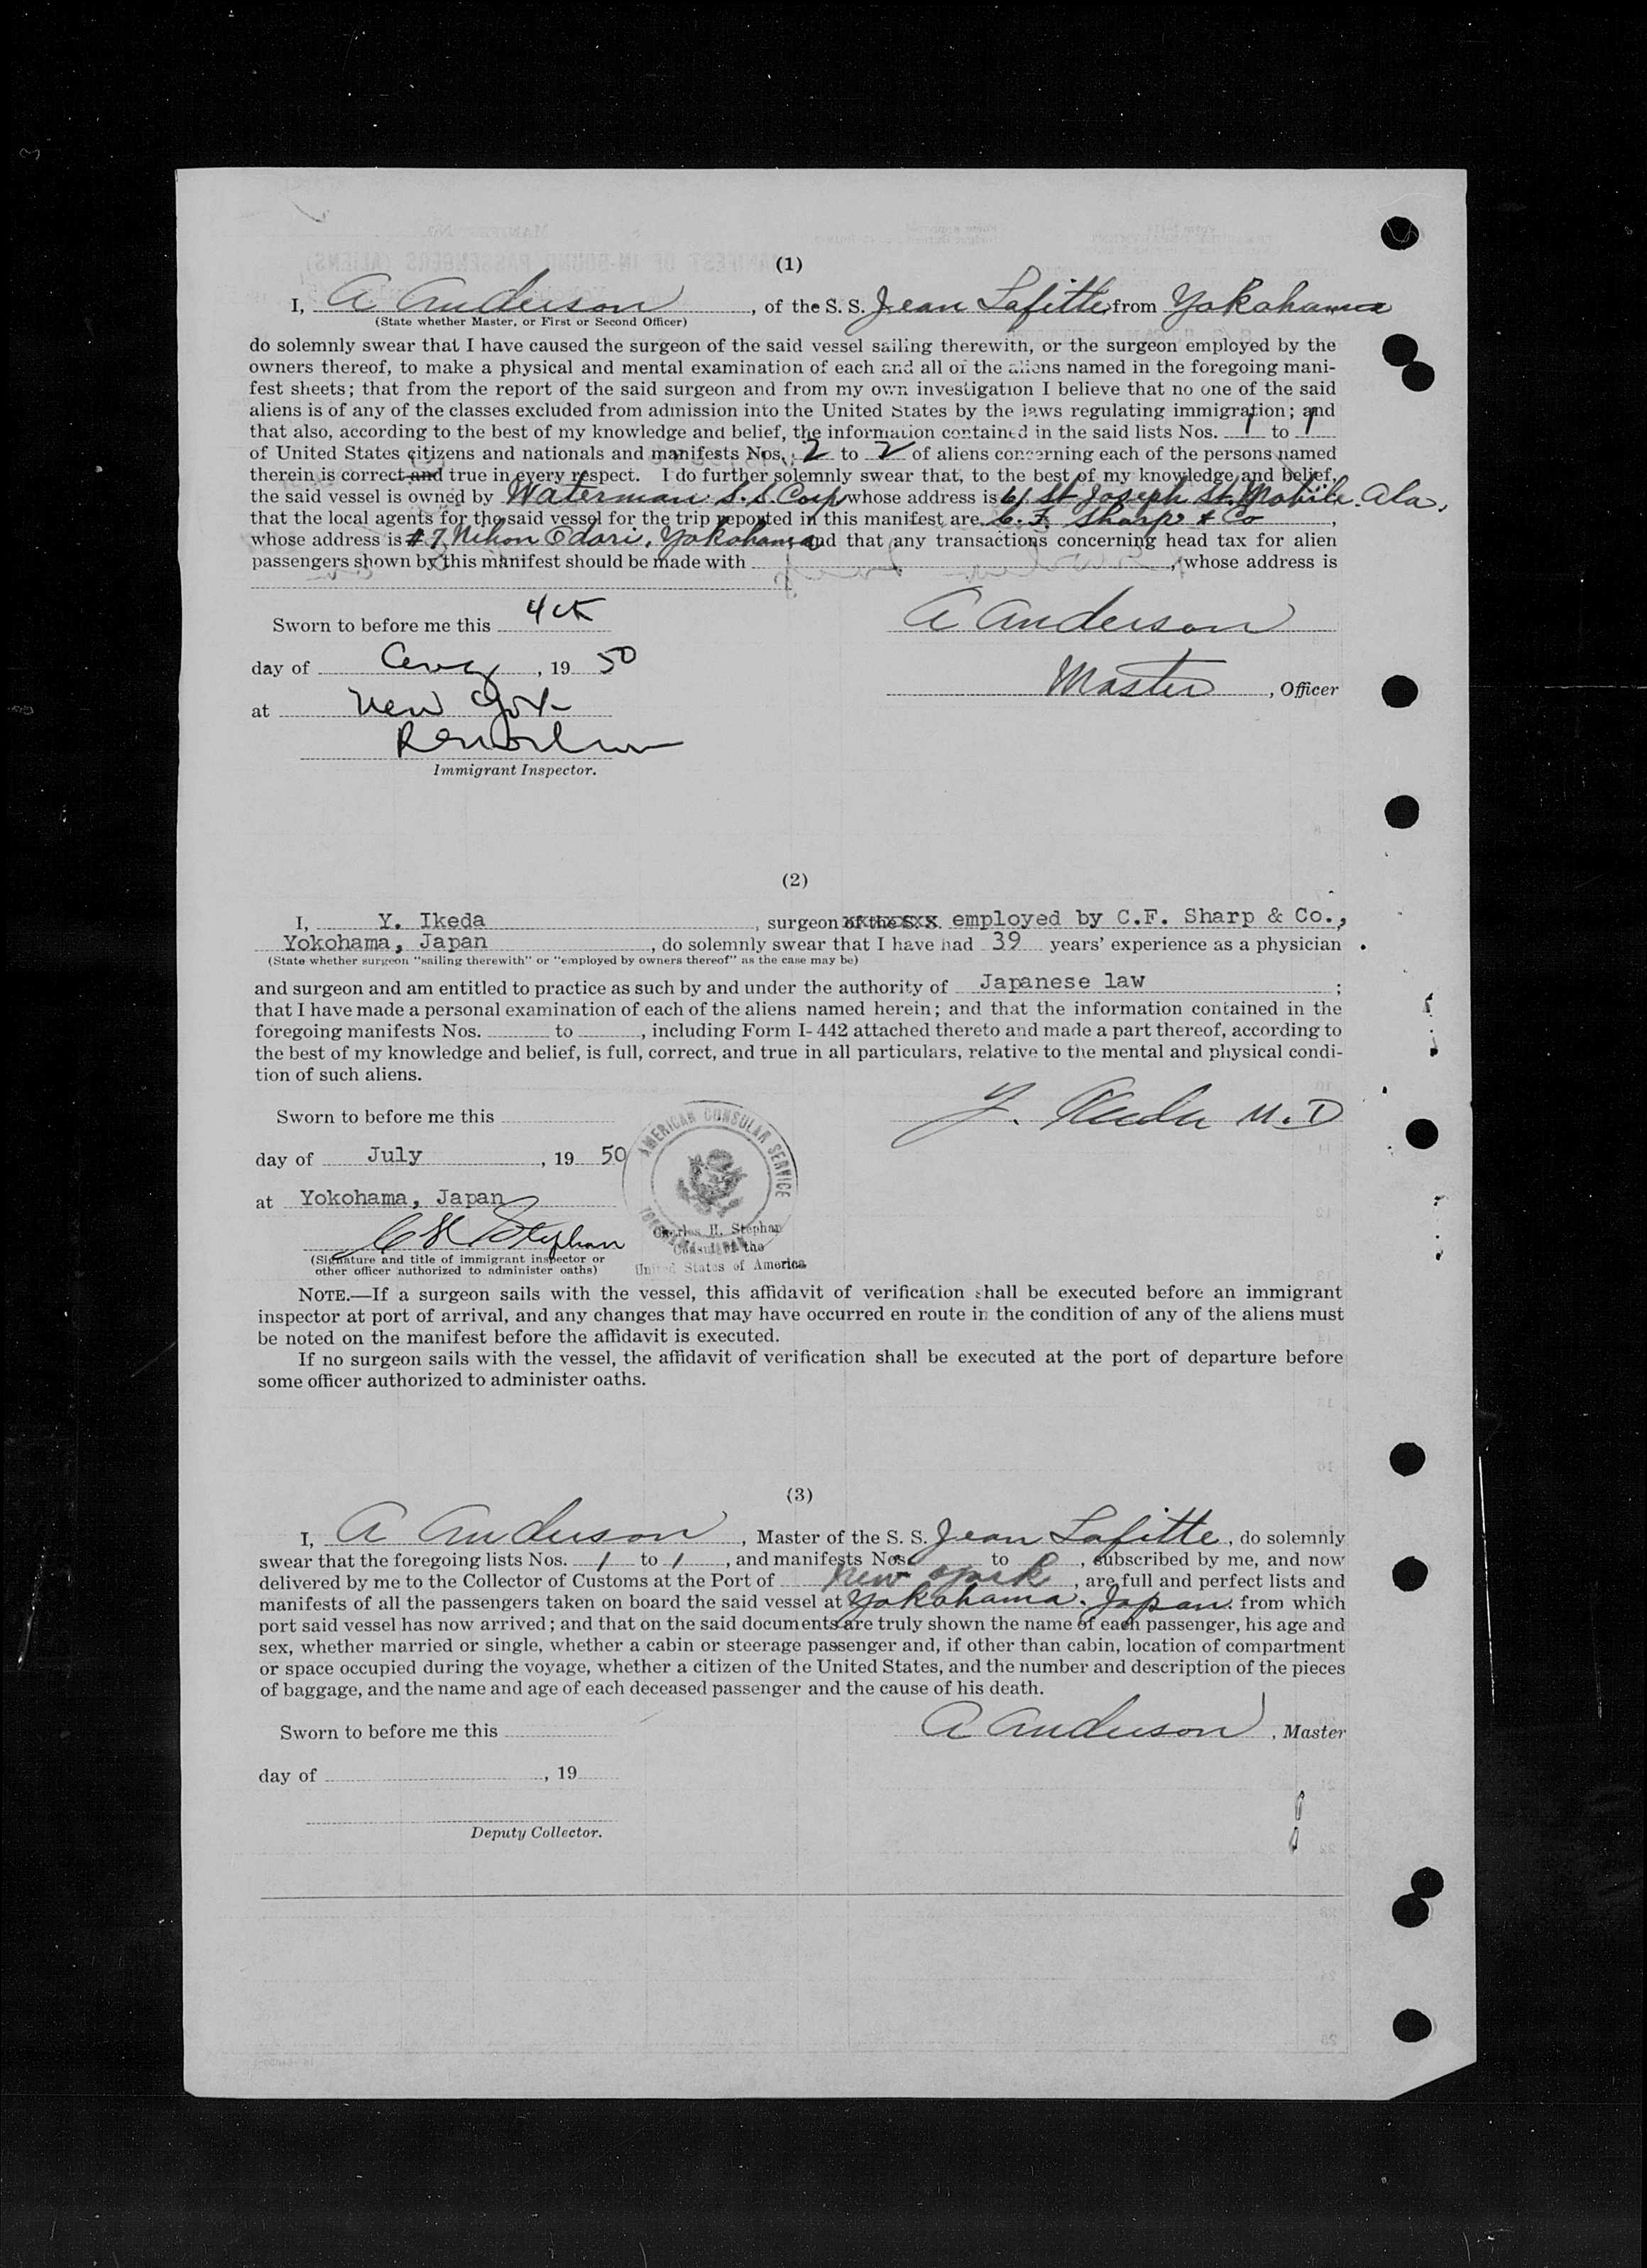 (1)
I, A Anderson, of the S. S. Jean Lafitte, from Yokohama
(State whether Master, or First or Second Officer)
do solemnly swear that I have caused the surgeon of the said vessel sailing therewith, or the surgeon employed by the
owners thereof, to make a physical and mental examination of each and all of the aliens named in the foregoing mani-
fest sheets; that from the report of the said surgeon and from my own investigation I believe that no one of the said
aliens is of any of the classes excluded from admission into the United States by the laws regulating immigration; and
that also, according to the best of my knowledge and belief, the information contained in the said lists Nos. 1 to 1
of United States citizens and nationals and manifests Nos. 2 to 2 of aliens concerning each of the persons named
therein is correct and true in every respect. I do further solemnly swear that, to the best of my knowledge and belief,
the said vessel is owned by Waterman S. S. Corp whose address is 61 St Joseph St. Mobile. Ala.
that the local agents for the said vessel for the trip reported in this manifest are C. F. Sharp & Co,
whose address is #7 Nihon Odari, Yokohama and that any transactions concerning head tax for alien
passengers shown by this manifest should be made with , whose address is
Sworn to before me this 4th
A Anderson
day of Aug, 19 50
Master, Officer
at New York
Immigrant Inspector.
(2)
I, Y. Ikeda, surgeon of the S. S. employed by C.F. Sharp & Co.,
Yokohama, Japan, do solemnly swear that I have had 39 years' experience as a physician .
(State whether surgeon "sailing therewith" or "employed by owners thereof" as the case may be)
and surgeon and am entitled to practice as such by and under the authority of Japanese law ;
that I have made a personal examination of each of the aliens named herein; and that the information contained in the
foregoing manifests Nos. to , including Form I-442 attached thereto and made a part thereof, according to
the best of my knowledge and belief, is full, correct, and true in all particulars, relative to the mental and physical condi-
tion of such aliens.
Sworn to before me this
Y. Ikeda M. D
day of July, 19 50
AMERICAN CONSULAR SERVICE
at Yokohama, Japan
C H Stephan
Charles H. Stephan
Consul of the
United States of America
(Signature and title of immigrant inspector or
other officer authorized to administer oaths)
NOTE.—If a surgeon sails with the vessel, this affidavit of verification shall be executed before an immigrant
inspector at port of arrival, and any changes that may have occurred en route in the condition of any of the aliens must
be noted on the manifest before the affidavit is executed.
If no surgeon sails with the vessel, the affidavit of verification shall be executed at the port of departure before
some officer authorized to administer oaths.
(3)
I, A Anderson, Master of the S. S. Jean Lafitte, do solemnly
swear that the foregoing lists Nos. 1 to 1, and manifests Nos. to , subscribed by me, and now
delivered by me to the Collector of Customs at the Port of New York, are full and perfect lists and
manifests of all the passengers taken on board the said vessel at Yokohama. Japan. from which
port said vessel has now arrived; and that on the said documents are truly shown the name of each passenger, his age and
sex, whether married or single, whether a cabin or steerage passenger and, if other than cabin, location of compartment
or space occupied during the voyage, whether a citizen of the United States, and the number and description of the pieces
of baggage, and the name and age of each deceased passenger and the cause of his death.
Sworn to before me this
A Anderson, Master
day of , 19
Deputy Collector.